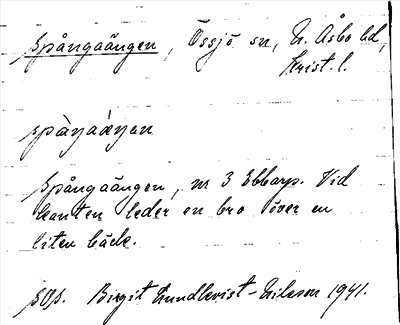 Spångaängen, Össjö sn, N. Åsbo hd,
Krist. l.
Spångaängen, nr 3 Ebbarp. Vid
kanten leder en bro över en
liten bäck.
Birgit Lundkvist-Nilsson 1941.